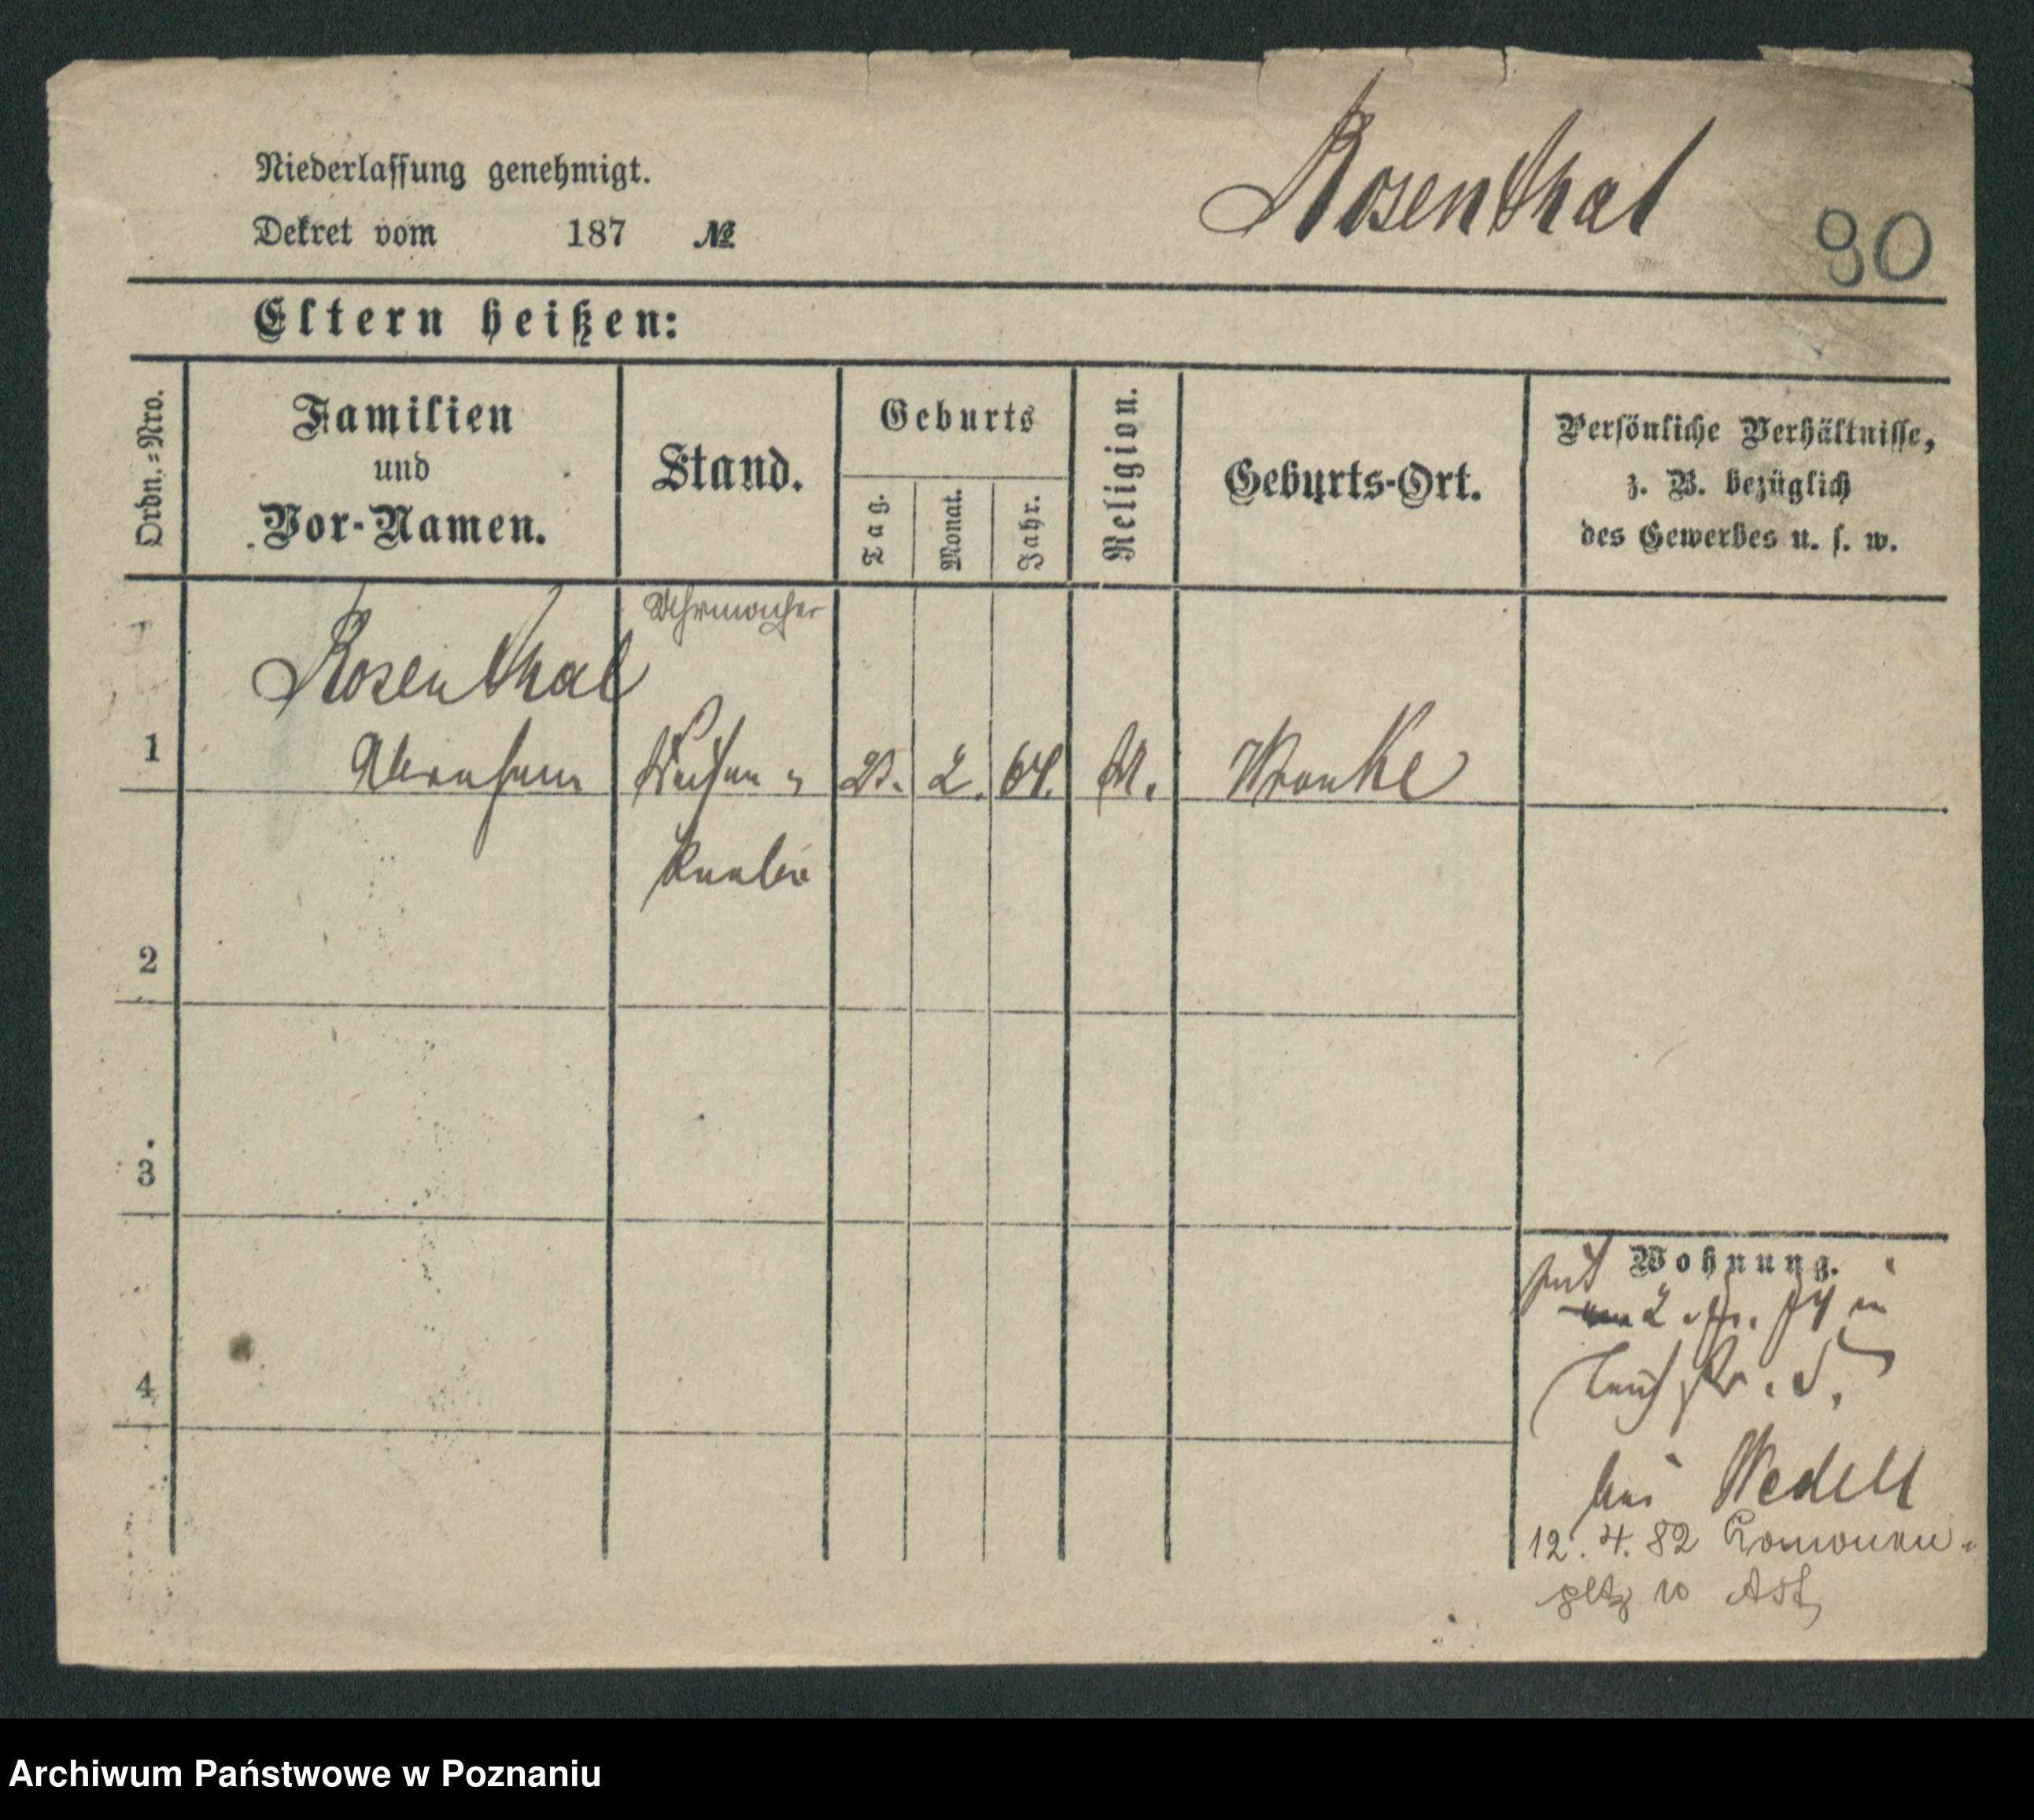 Niederlassung genehmigt.
Dekret vom 187 №
Rosenthal
90
Eltern heißen:
Ordn.=Nro.
Familien
und
Vor-Namen.
Stand.
Geburts
Tag.
Monat.
Jahr.
Religion.
Geburts-Ort.
Persönliche Verhältnisse,
z. B. bezüglich
des Gewerbes u. s. w.
Uhrmacher
Rosenthal
1 Abraham Waisen 2. 64. M. Wronke
Knabe
2
3
4
Wohnung.
seit
2
bei Wedell
12. 4. 82
10
Archiwum Państwowe w Poznaniu